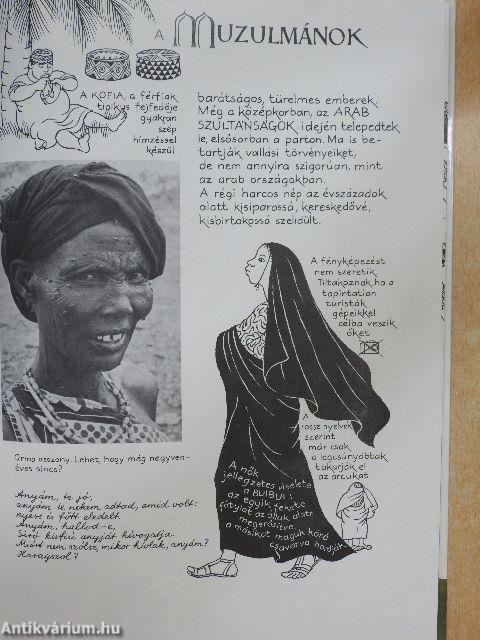 A MUZULMÁNOK
A KOFIA, a férfiak
tipikus fejfedője
gyakran
szép
hímzéssel
készül
barátságos, türelmes emberek.
Még a középkorban, az ARAB
SZULTANSÁGOK idején telepedtek
le, elsősorban a parton. Ma is be-
tartják vallási törvényeiket,
de nem annyira szigorúan, mint
az arab országokban.
A régi harcos nép az évszázadok
alatt kisiparossá, kereskedővé,
kisbirtokossá szelídült.
A fényképezést
nem szeretik.
Tiltakoznak, ha a
tapintatlan
turisták
gépeikkel
célba veszik
őket
A
rossz nyelvek
szerint
már csak
a legcsúnyábbak
takarják el
az arcukat
A nők
jellegzetes viselete
a BUIBUI:
az egyik fekete
fátylat az álluk alatt
megerősítve
a másikat maguk köré
csavarva hordják
Orma asszony. Lehet, hogy még negyven-
éves sincs?
Anyám, te jó,
anyám te nekem adtad, amid volt:
nyers és főtt eledelt.
Anyám, hallod-e,
Síró kisfiú anyját hívogatja.
Miért nem szólsz, mikor hívlak, anyám?
Haragszol?
Antikvárium.hu